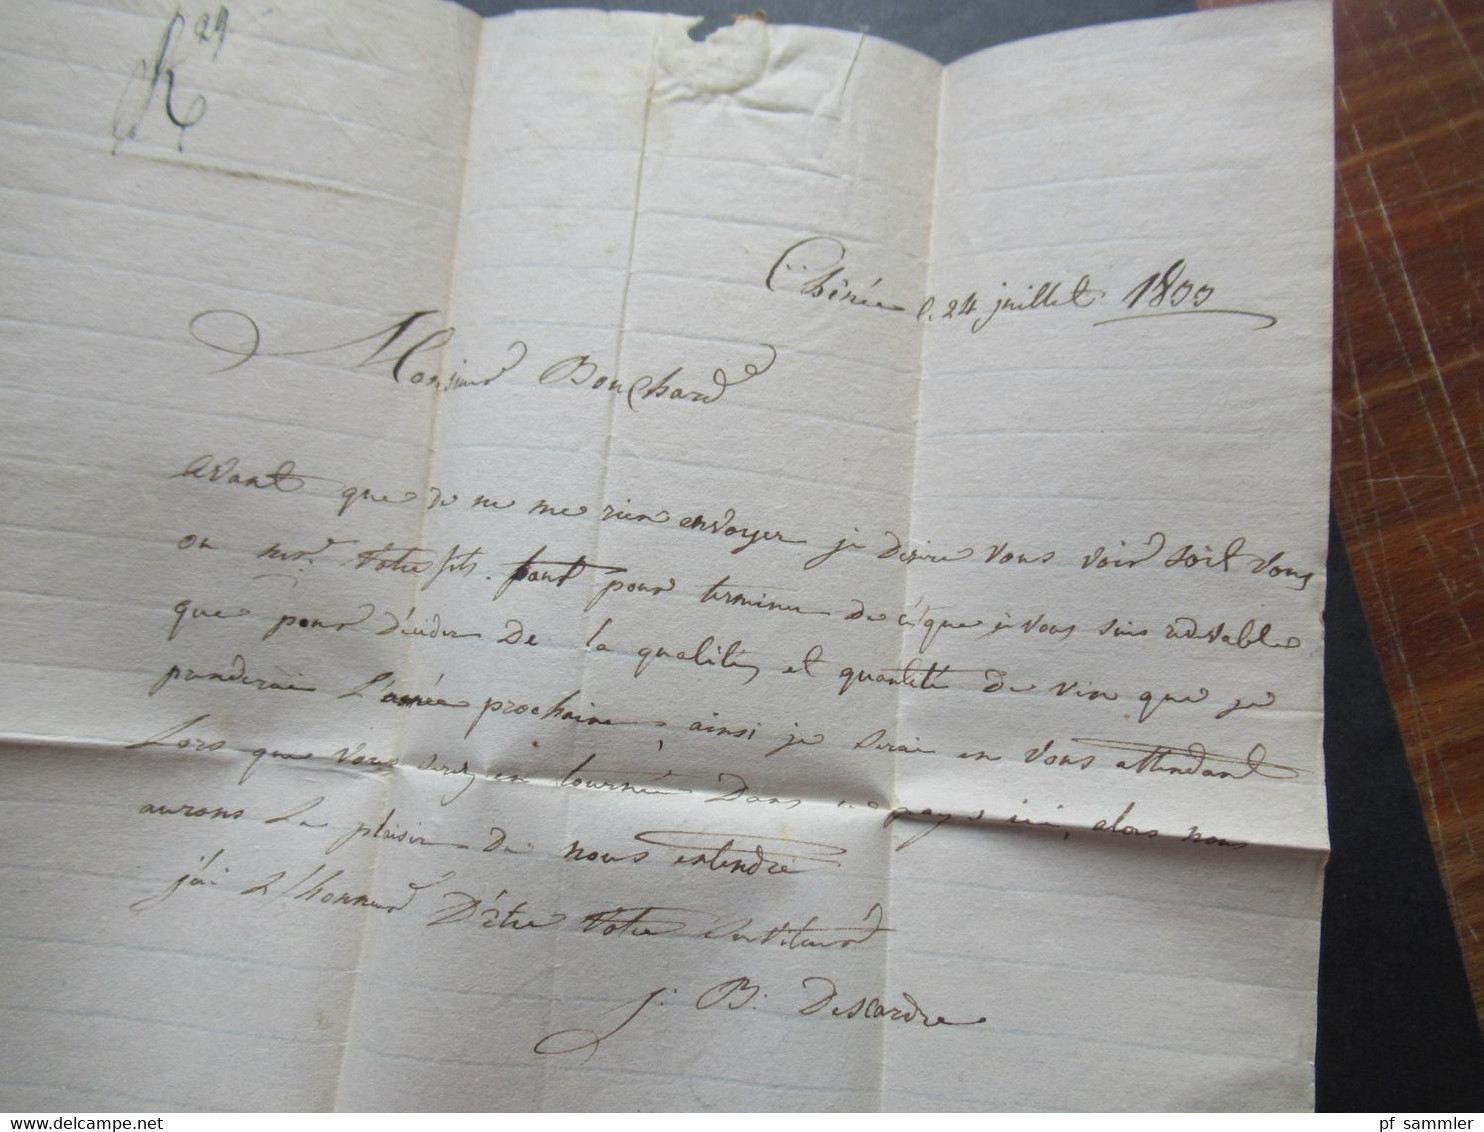 R 29
Chênée le 24 juillet 1855
Monsieur Bouchard
avant que de ne me rien envoyer je desire vous voir soit vous
ou mr. votre fils. tant pour terminer de ce que je vous suis redevable
que pour décider de la qualité, et quantité de vin que je
prenderai l'année prochaine, ainsi je serai en vous attendant
Lors que vous serez en tournée dans ce pays ici, alors nous
aurons le plaisir de nous entendre
j'ai l'honneur d'être votre serviteur
j. B. Descardre
pf sammler